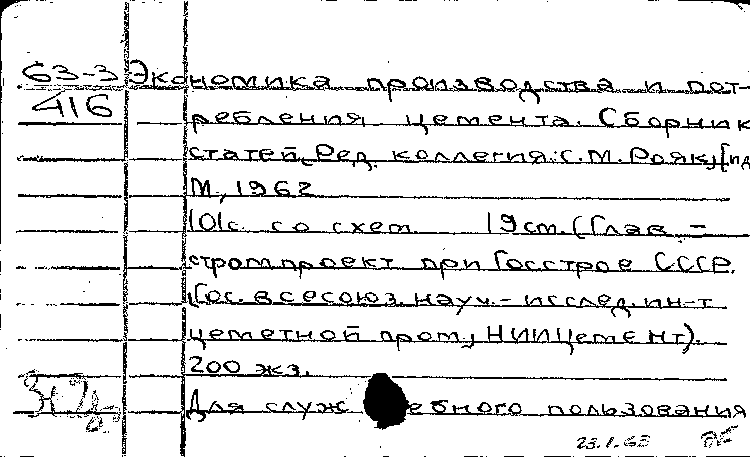 63-3 Экономика производства и пот-
416 ребления цемента. Сборник
статей. Ред. коллегия: С.М. Рояк,
М., 1962
101с. со схем. 19см. (Глав -
стромпроект при Госстрое СССР.
Гос. всесоюз. науч.- исслед. ин-т
цеметной пром, НИИЦемент).
200 экз.
Для служ ебного пользования
23.1.63